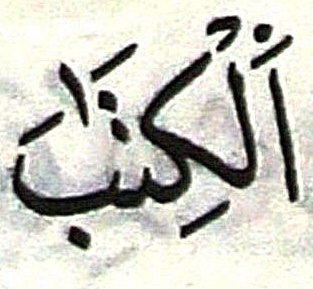 اَلْكِتٰبَ